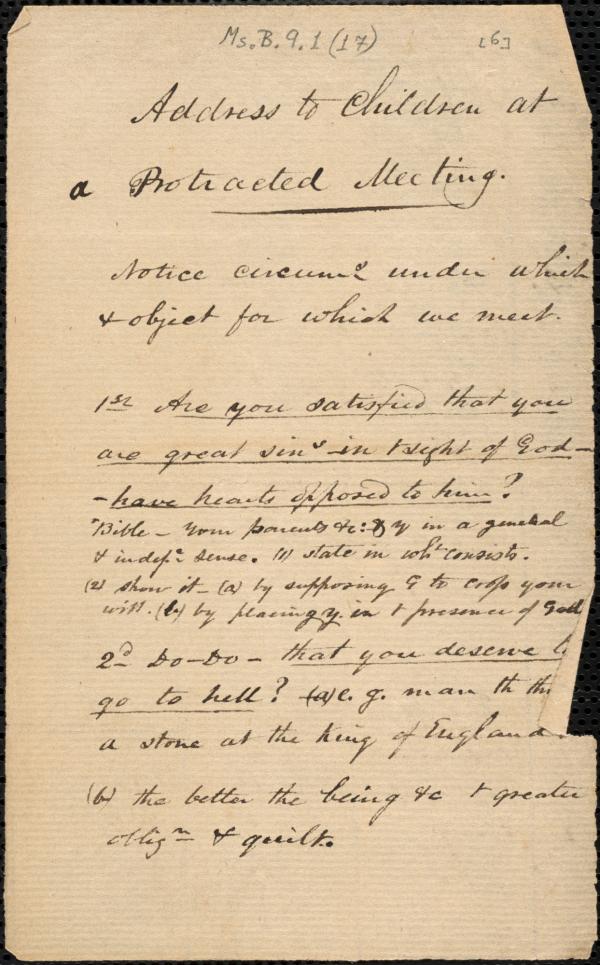 Ms. B. 9. 1 (17) [6]
Address to Children at
a Protracted Meeting.
Notice circums under which
& object for which we meet.
1st Are you satisfied that you
are great sins in t sight of God -
- have hearts opposed to him?
Bible - Your parents &c: y in a general
& indefe sense. (1) state in wht consists.
(2) show it - (a) by supposing G to cross your
will. (b) by placing y. in t presence of God
2d Do - Do - that you deserve t
go to hell? (a) e. g. man th th
a stone at the King of England.
(b) the better the being &c t greater
oblign & guilt.